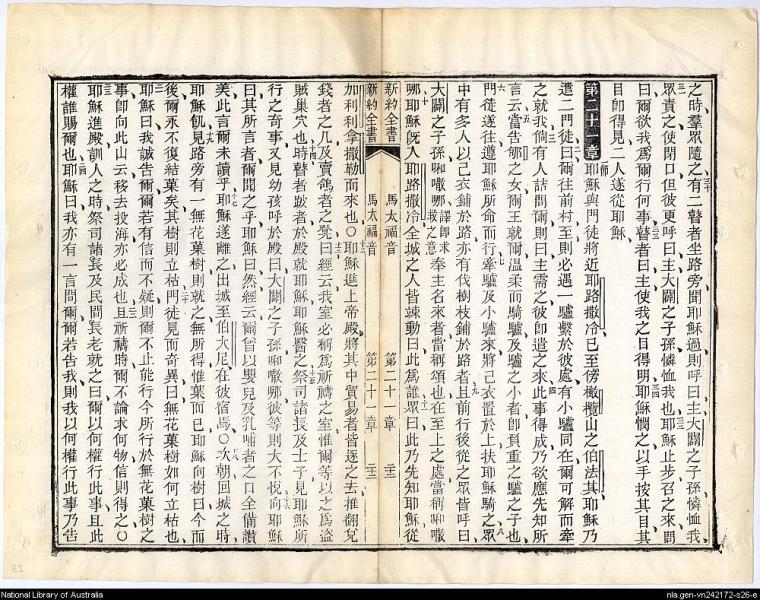 之時羣眾隨之有二瞽者坐路旁聞耶穌過則呼曰主大闢之子孫憐恤我
眾責之使閉口但彼更呼曰主大闢之子孫憐恤我也耶穌止步召之來問
曰爾欲我爲爾行何事瞽者曰主使我之目得明耶穌憫之以手按其目其
目卽得見二人遂從耶穌
第二十一章 耶穌與門徒將近耶路撒冷已至傍橄欖山之伯法其耶穌乃
遣二門徒曰爾往前村至則必遇一驢繫於彼處有小驢同在爾可解而牽
之就我倘有人詰問爾則曰主需之彼卽遣之來此事得成乃欲應先知所
言云當告郇之女爾王就爾溫柔而騎驢及驢之小者卽負重之驢之子也
門徒遂往遵耶穌所命而行牽驢及小驢來將己衣置於上扶耶穌騎之眾
中有多人以己衣鋪於路亦有伐樹枝鋪於路者且前行後從之眾皆呼曰
大闢之子孫哪譯卽求救之意奉主名來者當稱頌也在至上之處當稱
哪耶穌旣入耶路撒冷全城之人皆竦動曰此爲誰眾曰此乃先知耶穌從
新約全書 馬太福音 第二十一章
新約全書 馬太福音 第二十一章
加利利拿撒勒而來也〇耶穌進上帝殿將其中貿易者皆逐之去推翻兌
錢者之几及賣鴿者之凳曰經云我室必稱爲祈禱之室惟爾等以之爲盜
賊巢穴也時瞽者跛者於殿就耶穌耶穌醫之祭司諸長及士子見耶穌所
行之奇事又見幼孩呼於殿曰大闢之子孫哪彼等則大不悅向耶穌
曰其所言者爾聞之乎耶穌曰然經云爾曾以嬰兒及乳哺者之口全備讚
美此言爾未讀乎耶穌遂離之出城至伯大尼在彼宿焉〇次朝回城之時
耶穌飢見路旁有一無花菓樹則就之無所得惟葉而已耶穌向樹曰今而
後爾永不復結菓矣其樹則立枯門徒見而奇異曰無花菓樹如何立枯也
耶穌曰我誠告爾爾若有信而不疑則爾不止能行今所行於無花菓樹之
事卽向此山云移去投海亦必成也且祈禱時爾不論求何物信則得之〇
耶穌進殿訓人之時祭司諸長及民間長老就之曰爾以何權行此事且此
權誰賜爾也耶穌曰我亦有一言問爾爾若告我則我以何權行此事乃告
National Library of Australia
nla.gen-vn242172-s26-e